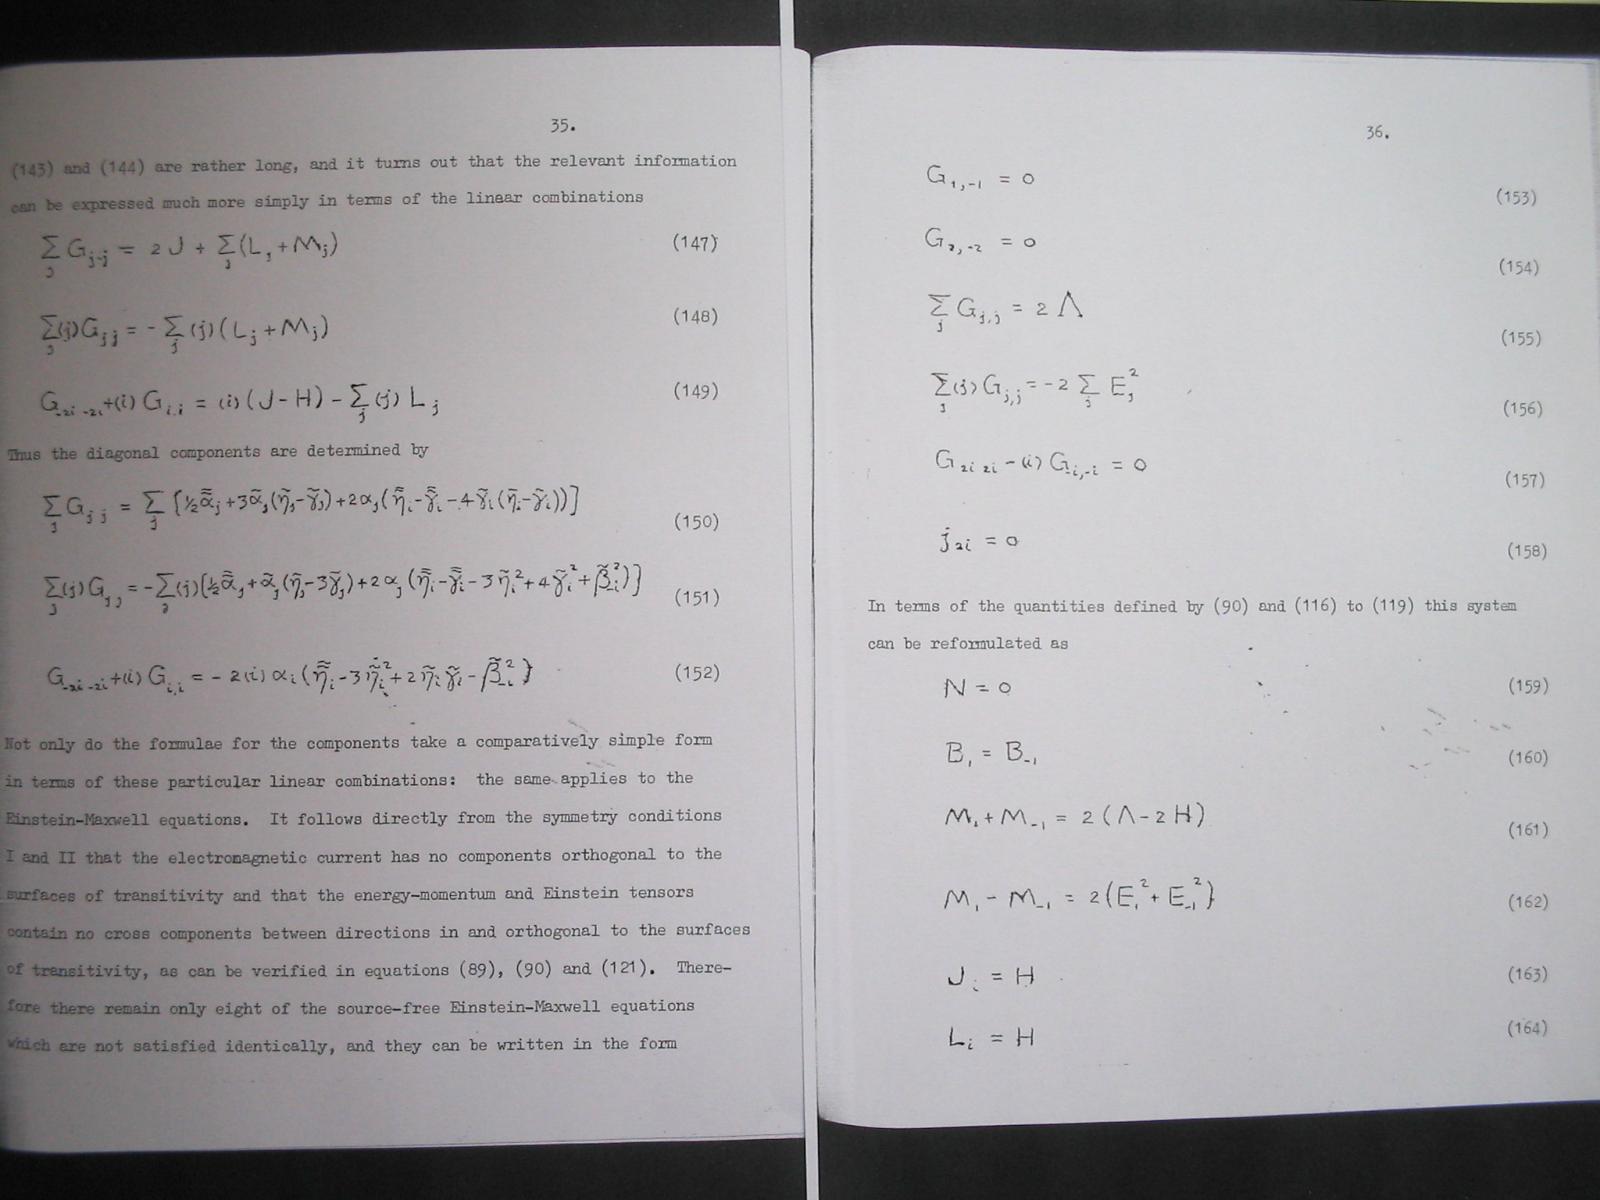 35.
(143) and (144) are rather long, and it turns out that the relevant information
can be expressed much more simply in terms of the linear combinations
∑_j G_{j-j} = 2J + ∑_j (L_j + M_j) (147)
∑_j (j) G_{jj} = - ∑_j (j) (L_j + M_j) (148)
G_{-2i -2i} + (i) G_{i,i} = (i) (J - H) - ∑_j (j) L_j (149)
Thus the diagonal components are determined by
∑_j G_{jj} = ∑_j {½ α̃̃_j + 3 α̃_j (η̃_j - γ̃_j) + 2 α_j (η̃̃_i - γ̃̃_i - 4 γ̃_i (η̃_i - γ̃_i))} (150)
∑_j (j) G_{jj} = - ∑_j (j) {½ α̃̃_j + α̃_j (η̃_j - 3 γ̃_j) + 2 α_j (η̃̃_i - γ̃̃_i - 3 η̃_i² + 4 γ̃_i² + β̃_{-i}²)} (151)
G_{-2i -2i} + (i) G_{i,i} = - 2 (i) α_i (η̃̃_i - 3 η̃_i² + 2 η̃_i γ̃_i - β̃_{-i}²} (152)
Not only do the formulae for the components take a comparatively simple form
in terms of these particular linear combinations: the same applies to the
Einstein-Maxwell equations. It follows directly from the symmetry conditions
I and II that the electromagnetic current has no components orthogonal to the
surfaces of transitivity and that the energy-momentum and Einstein tensors
contain no cross components between directions in and orthogonal to the surfaces
of transitivity, as can be verified in equations (89), (90) and (121). There-
fore there remain only eight of the source-free Einstein-Maxwell equations
which are not satisfied identically, and they can be written in the form
36.
G_{1,-1} = 0 (153)
G_{2,-2} = 0 (154)
∑_j G_{j,j} = 2 Λ (155)
∑_j (j) G_{j,j} = -2 ∑_j E_j² (156)
G_{2i 2i} - (i) G_{-i,-i} = 0 (157)
j_{2i} = 0 (158)
In terms of the quantities defined by (90) and (116) to (119) this system
can be reformulated as
N = 0 (159)
B_1 = B_{-1} (160)
M_1 + M_{-1} = 2 (Λ - 2 H) (161)
M_1 - M_{-1} = 2 {E_1² + E_{-1}²} (162)
J_i = H (163)
L_i = H (164)